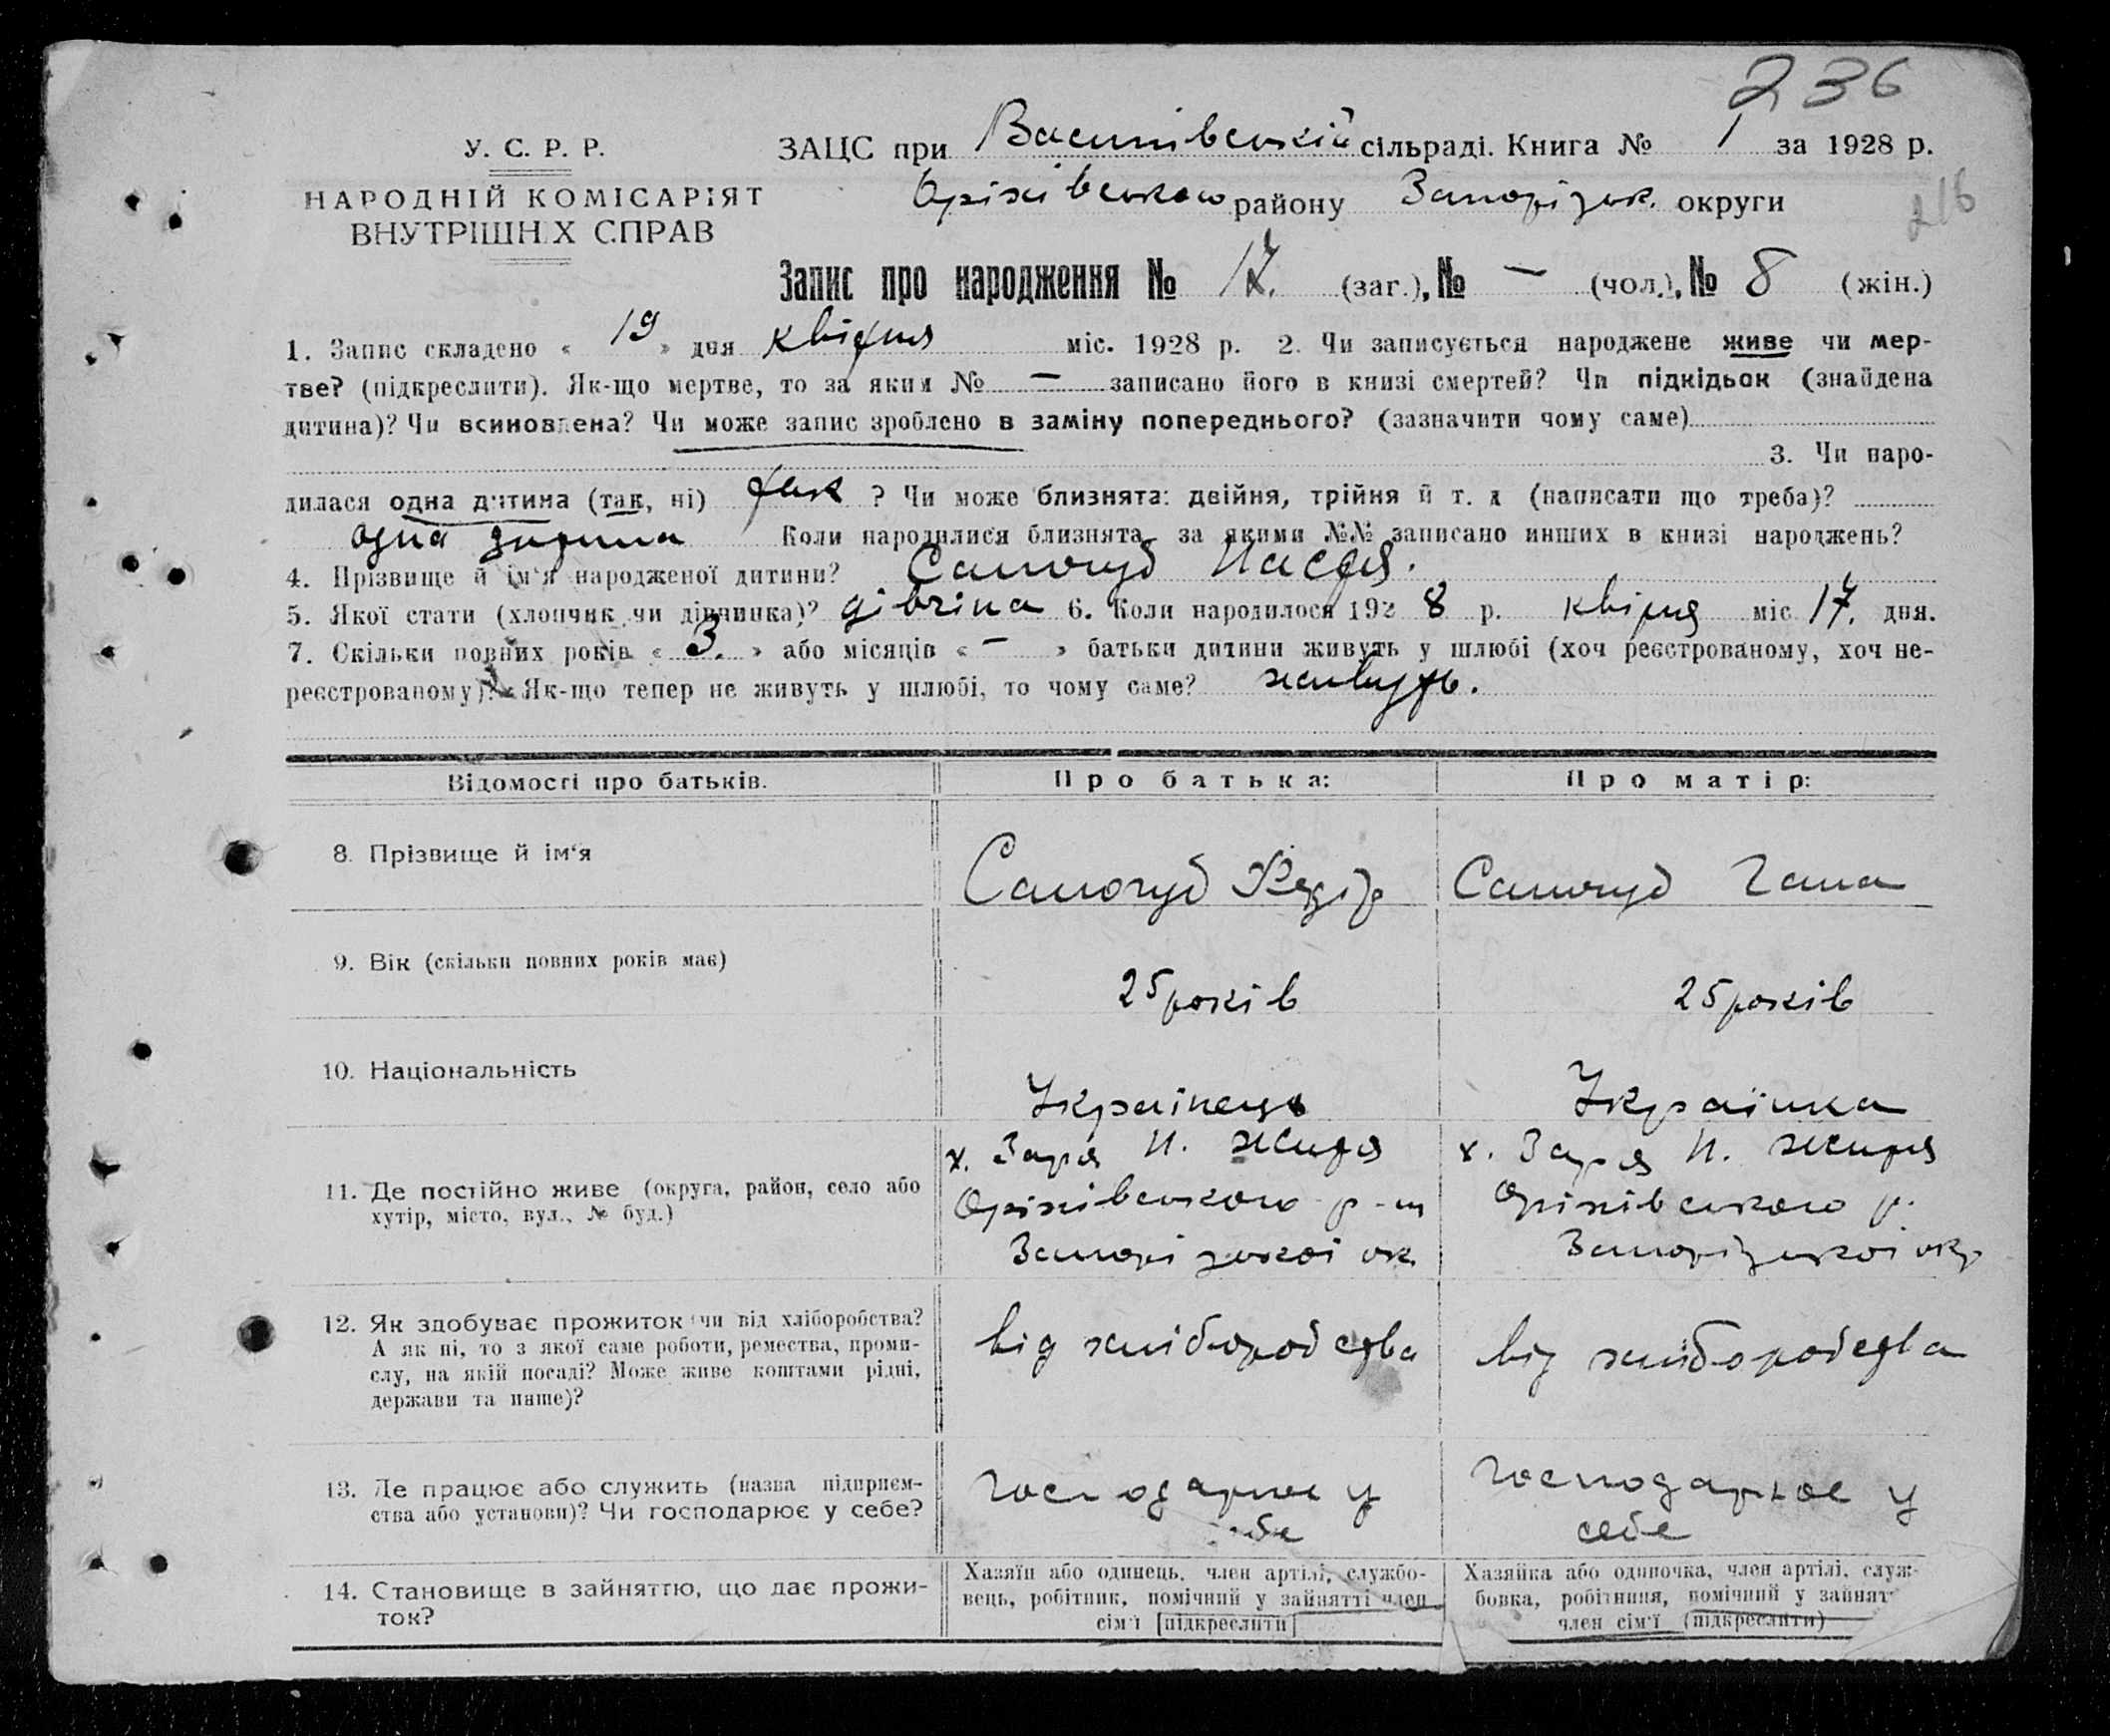 236
У. С. Р. Р.
ЗАЦС при Василівській сільраді. Книга № 1 за 1928 р.
НАРОДНІЙ КОМІСАРІЯТ
Оріхівського району Запорізьк. округи
216
ВНУТРІШНІХ СПРАВ
Запис про народження № 17. (заг.), № — (чол.), № 8 (жін.)
1. Запис складено « 19 » дня квітня міс. 1928 р. 2. Чи записується народжене живе чи мер-
тве? (підкреслити). Як-що мертве, то за яким № — записано його в книзі смертей? Чи підкідьок (знайдена
дитина)? Чи всиновлена? Чи може запис зроблено в заміну попереднього? (зазначити чому саме)
3. Чи наро-
дилася одна дитина (так, ні) так ? Чи може близнята: двійня, трійня й т. д (написати що треба)?
одна дитина Коли народилися близнята, за якими №№ записано инших в книзі народжень?
4. Прізвище й ім'я народженої дитини? Самогуд Настя.
5. Якої стати (хлопчик чи дівчинка)? дівчина 6. Коли народилося 1928 р. квітня міс 17. дня.
7. Скільки повних років « 3. » або місяців « — » батьки дитини живуть у шлюбі (хоч реєстрованому, хоч не-
реєстрованому)? Як-що тепер не живуть у шлюбі, то чому саме? живуть.
Відомості про батьків. Про батька: Про матір:
8. Прізвище й ім'я Самогуд Федір Самогуд Гана
9. Вік (скільки повних років має) 25 років 25 років
10. Національність Українець Українка
11. Де постійно живе (округа, район, село або
хутір, місто, вул., № буд.)
х. Заря Н. життя х. Заря Н. життя
Оріхівського р-ну Оріхівського р.
Запорізької ок. Запорізької окр.
12. Як здобуває прожиток (чи від хліборобства?
А як ні, то з якої саме роботи, ремества, проми-
слу, на якій посаді? Може живе коштами рідні,
держави та инше)?
від хліборобства від хліборобства
13. Де працює або служить (назва підприєм-
ства або установи)? Чи господарює у себе?
господарює у себе господарює у
себе
14. Становище в зайняттю, що дає прожи-
ток?
Хазяїн або одинець, член артілі, службо-
вець, робітник, помічний у зайнятті член
сім'ї [підкреслити]
Хазяйка або одиночка, член артілі, служ-
бовка, робітниця, помічний у зайнят
член сім'ї (підкреслити)